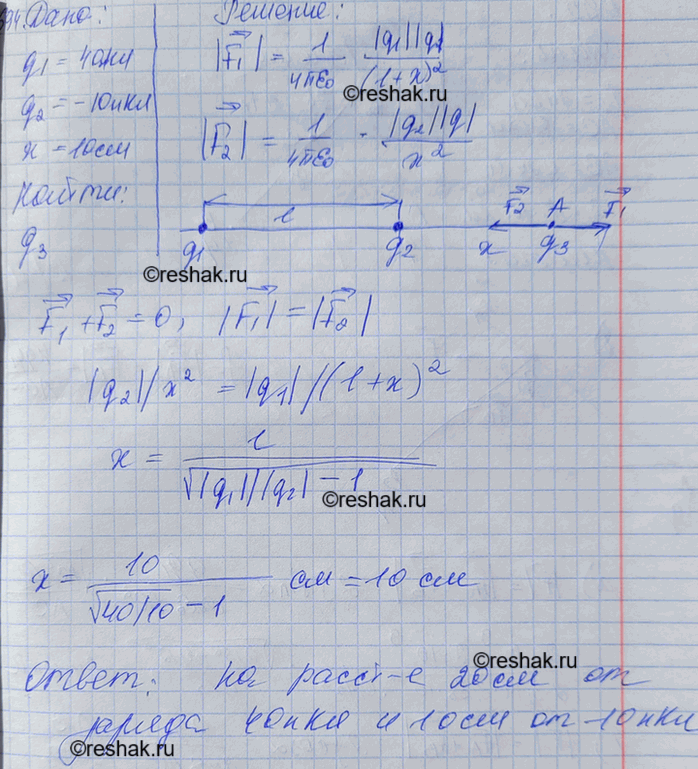 694. Дано:
Решение:
q1 = 40нкл
q2 = -10нкл
x = 10см
Найти:
q3
|F1| = 1/4πε0 |q1||q|/(l+x)²
©reshak.ru
|F2| = 1/4πε0 · |q2||q|/x²
l
F2 A F1
q1 q2 x q3
©reshak.ru
F1 + F2 = 0, |F1| = |F2|
|q2|/x² = |q1|/(l+x)²
x = l/√|q1|/|q2| - 1
©reshak.ru
x = 10/√40/10 - 1 см = 10 см
©reshak.ru
Ответ: на расст-е 20см от
заряда 40нкл и 10см от -10нкл
©reshak.ru